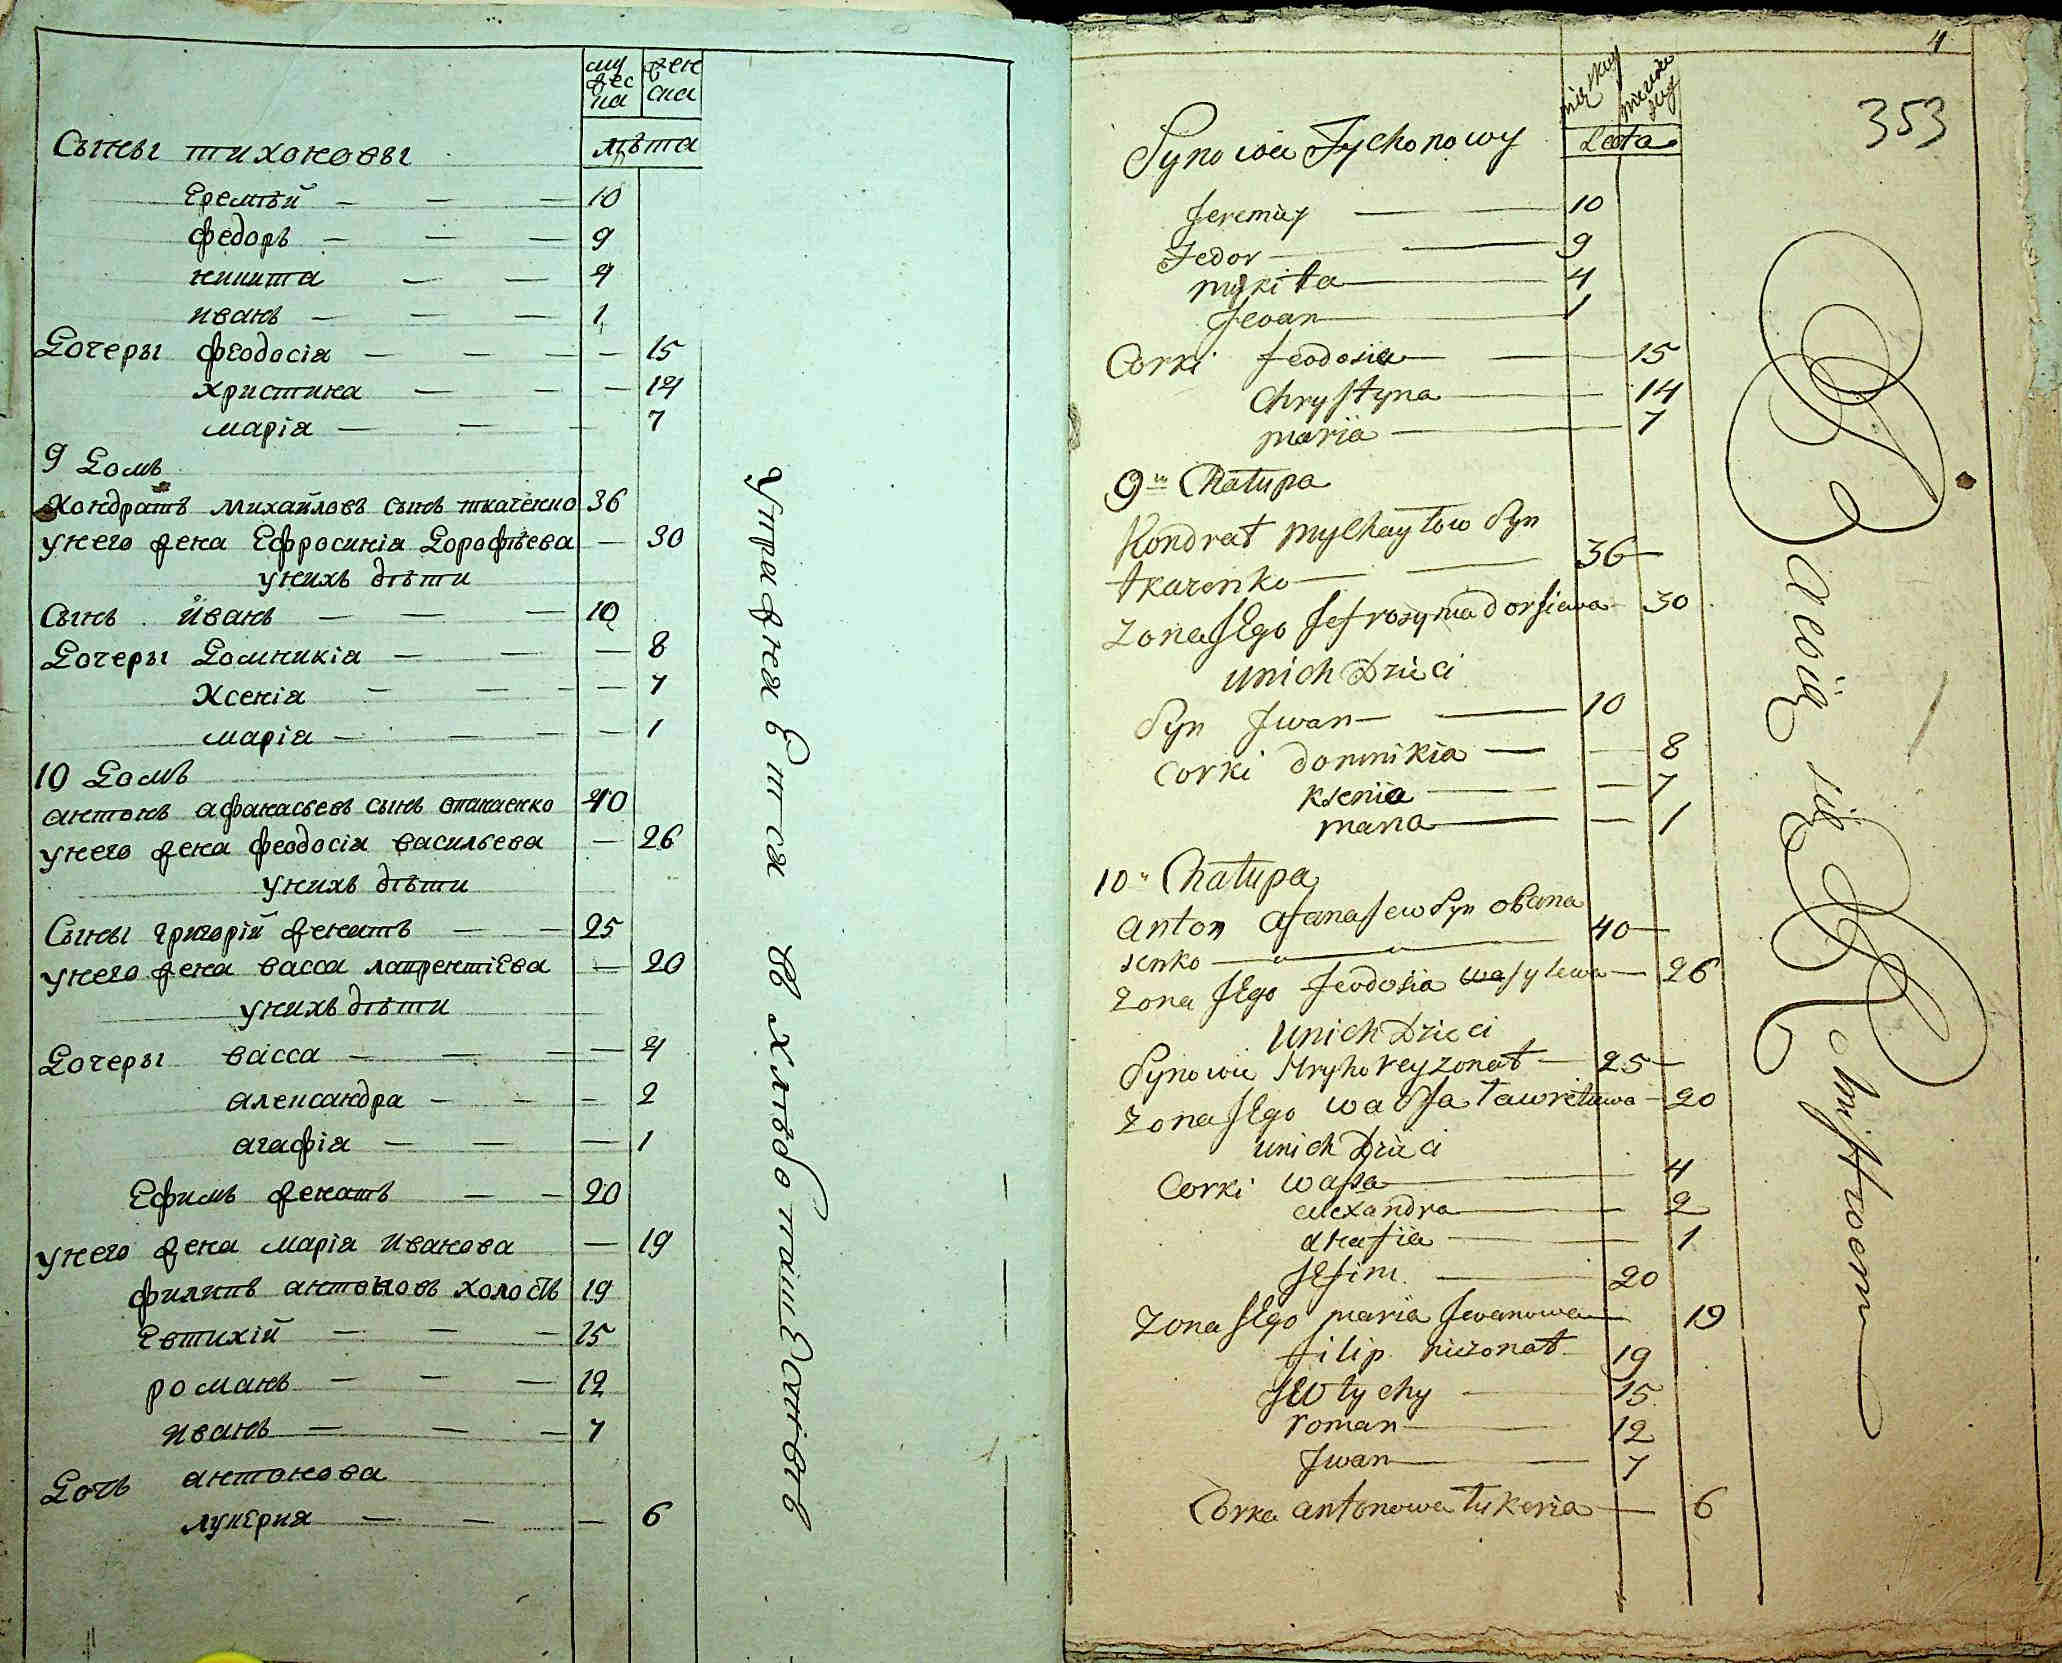 му жес ка
жен ска
лѣта
Сыны тихоновы
Еремѣй — — — 10
федоръ — — — 9
никита — — 4
иванъ — — — 1
Дочеры феодосіа — — — — 15
христина — — — 14
маріа — — — 7
9 Домъ
Кондратъ михайловъ сынъ ткаченко 36
унего жена Ефросиніа Дорофѣева — 30
унихъ дѣти
Сынъ иванъ — — — 10
Дочеры Домникіа — — — 8
Ксеніа — — — — 7
маріа — — — — 1
10 Домъ
антонъ афанасьевъ сынъ 40
унего жена феодосіа васильева — 26
унихъ дѣти
Сыны григорій женатъ — — 25
унего жена васса лаврентіЕва — 20
унихъ дѣти
Дочеры васса — — — — 4
александра — — — 2
агафіа — — — 1
Ефимъ женатъ — — 20
унего жена маріа иванова — 19
филипъ антоновъ холостъ 19
Евтихій — — — 15
романъ — — — 12
иванъ — — — 7
Дочь антонова
лукерия — — — 6
УпражняЕтся въ хлѣбопашЕствѣ
4
353
męzkuy
Lata
Synowie Tychonowy
Jeremiey — — 10
Fedor — — 9
mykita — 4
Jwan — 1
Corki feodosia — — — 15
Chrystyna — — 14
maria — 7
9 Chałupa
Kondrat mychayłow Syn
tkaczenko — — 36 —
Zona Jego Jefrosynia dorfiewa — 30
unich Dzieci
Syn Jwan — — 10
Corki domnikia — — 8
ksenia — — 7
maria — — 1
10 Chałupa
Anton afanasjew Syn obana
senko — 40 —
Zona Jego feodosia wasylewa — 26
Unich Dzieci
Synowie Hryhorey zonat — 25 —
Zona Jego wassa ławretiewa — 20
unich Dzieci
Corki wassa — 4
alexandra — 2
ahafia — — 1
Jefim — 20
Zona Jego maria Jwanowa — 19
filip niezonat 19
Jewtychy — 15
roman — 12
Jwan — 7
Corka antonowa łukeria — 6
Bawią się Rolnistwem